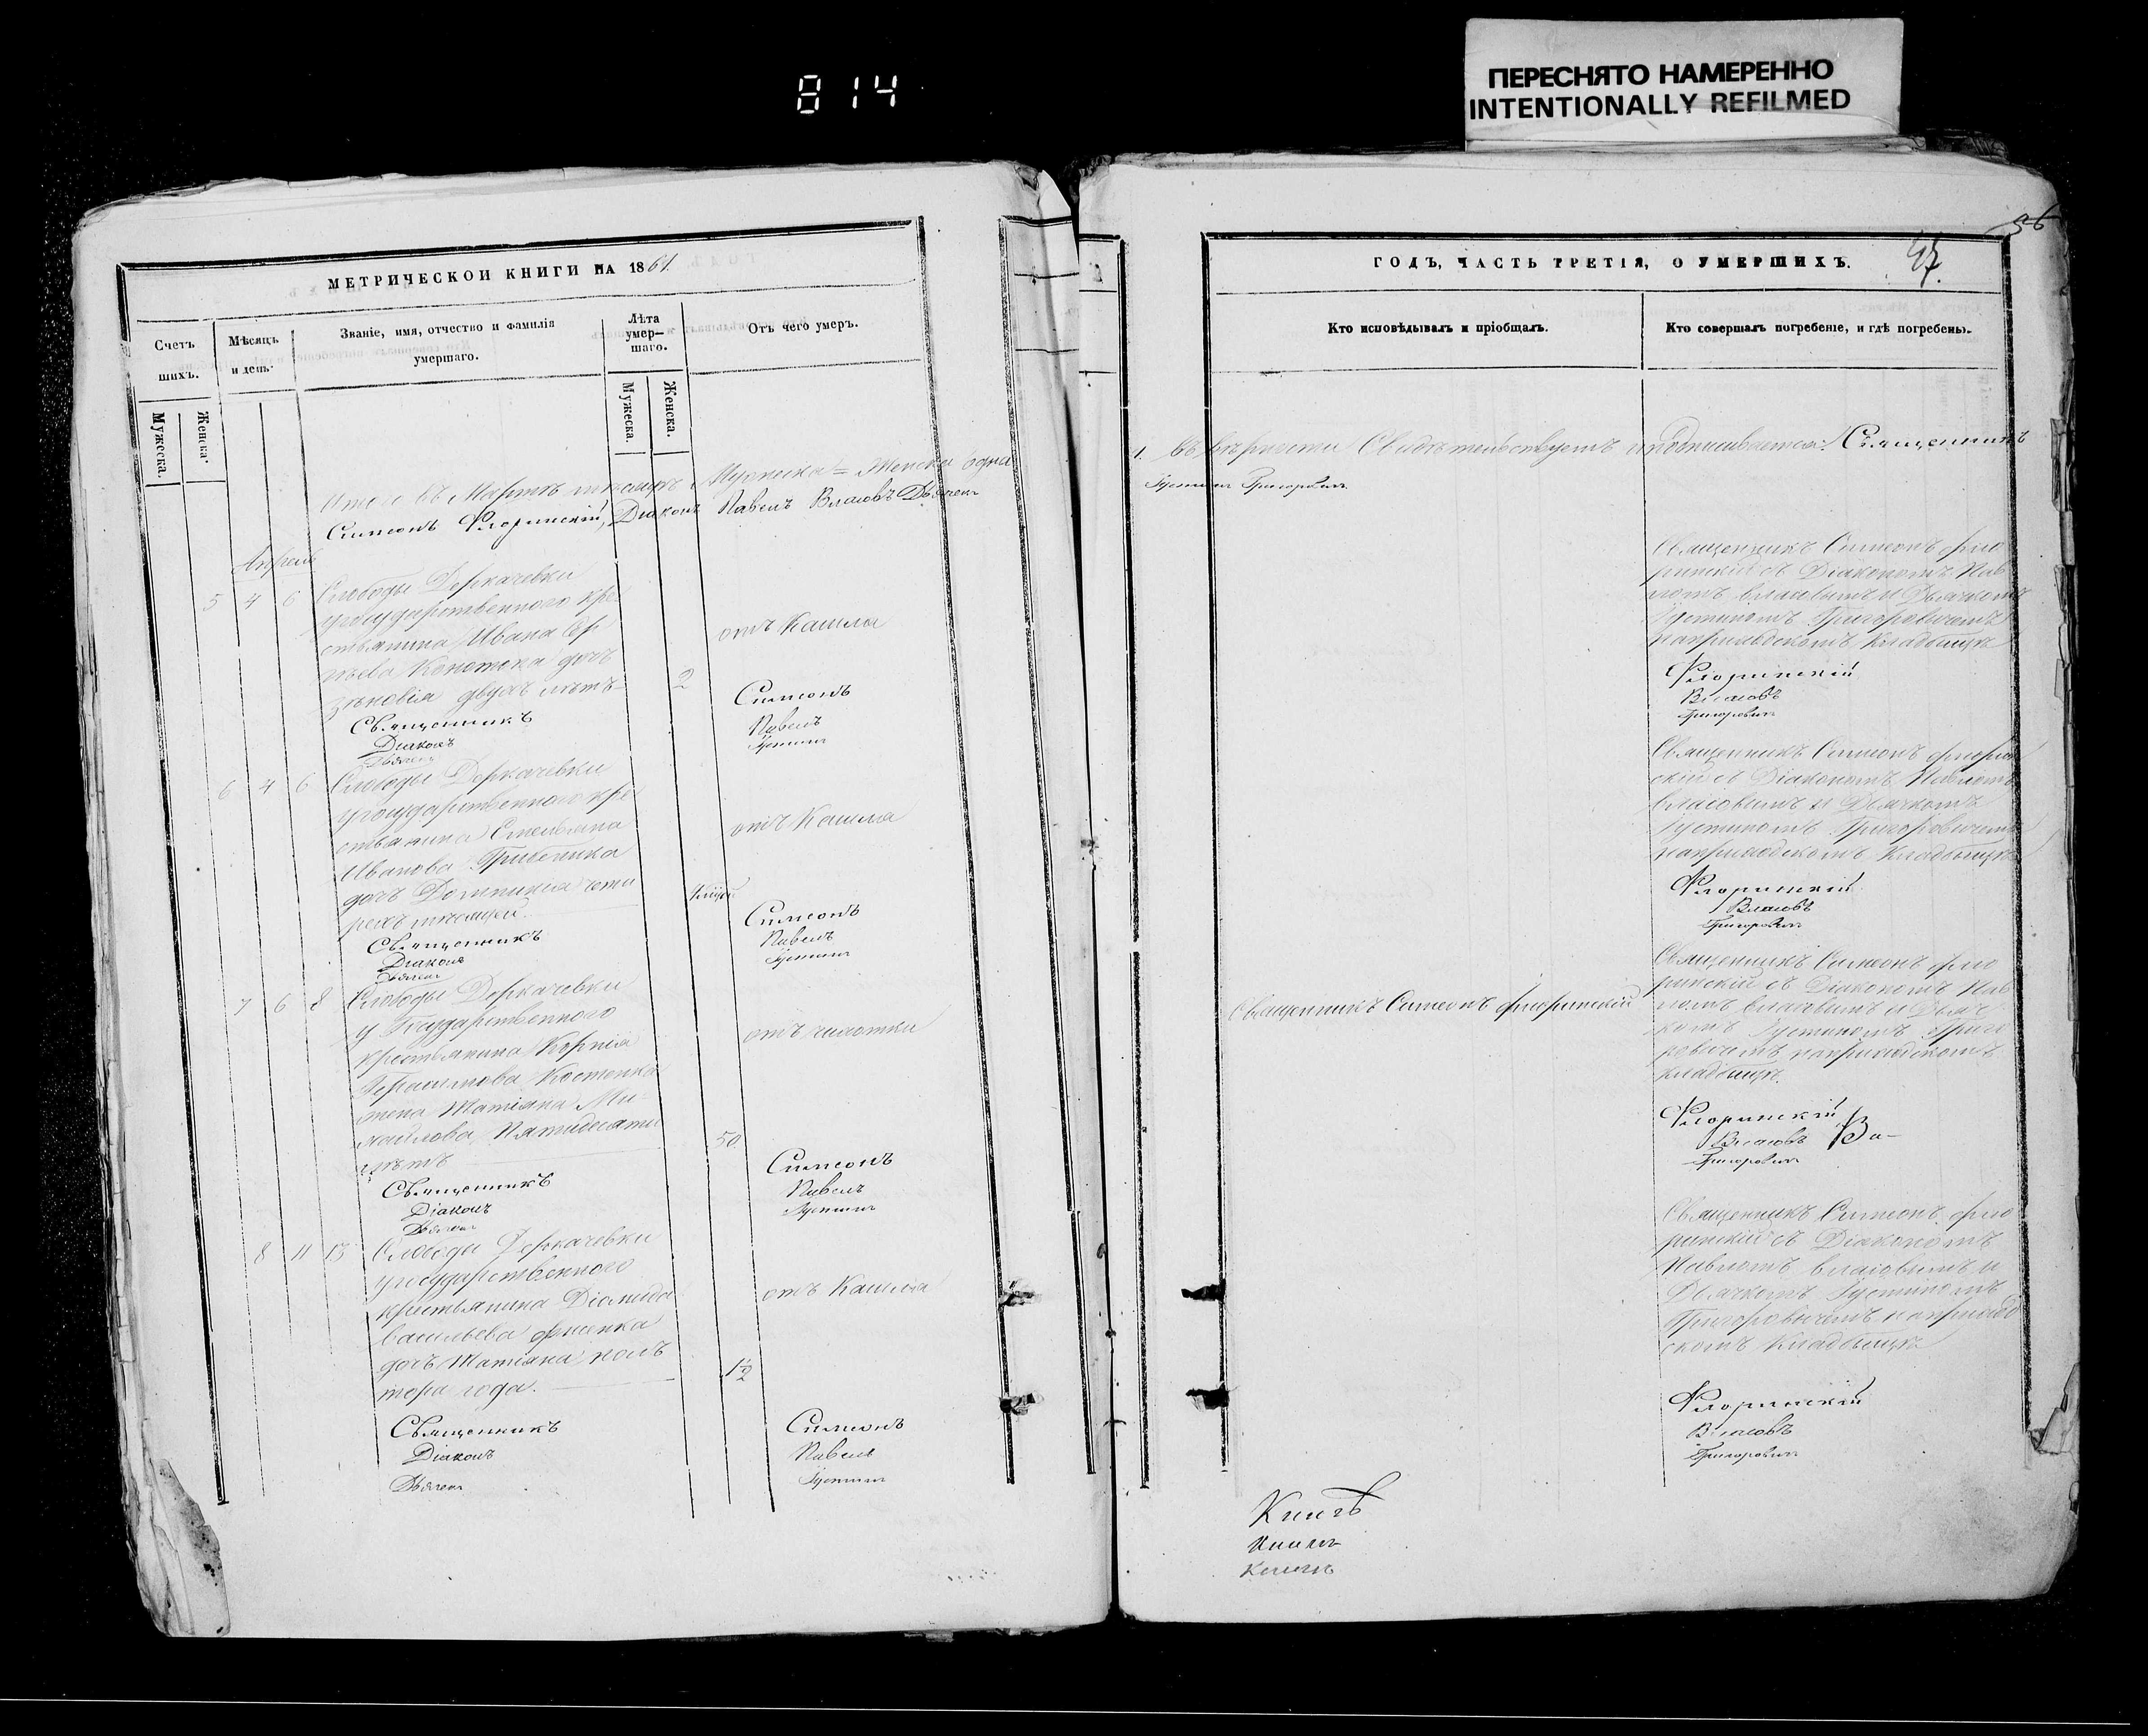 814
ПЕРЕСНЯТО НАМЕРЕННО
INTENTIONALLY REFILMED
МЕТРИЧЕСКОЙ КНИГИ НА 1861.
Счетъ
шихъ.
Мужеска.
Женска.
Мѣсяцъ
и день.
Званіе, имя, отчество и фамилія
умершаго.
Лѣта
умер–
шаго.
Мужеска.
Женска.
Отъ чего умеръ.
Итого въ Мартѣ мѣсяцѣ Мужеска = Женска одна
Симеонъ Флоринскій, Діаконъ Павелъ Власовъ Дьячекъ
Апрель
5 4 6
Слободы Деркачевки
у государственного кре
стьянина Ивана
Конотопа дочь
Зѣновія двухъ лѣтъ
2
отъ Кашля
Священникъ Симеонъ
Діаконъ Павелъ
Дьячекъ Іустинъ
6 4 6
Слободы Деркачевки
у государственного кре
стьянина Емельяна
Иванова
дочь Домникія четы
рехъ мѣсяцей
отъ Кашля
Священникъ Симеонъ
Діаконъ Павелъ
Дьячекъ Іустинъ
7 6 8
Слободы Деркачевки
у Государственного
крестьянина Корнія
Герасимова Костенка
жена Татіяна Ми
хайлова Пятидесяти
лѣтъ
50
отъ чахотки
Священникъ Симеонъ
Діаконъ Павелъ
Дьячекъ Іустинъ
8 11 13
Слободы Деркачевки
у государственного
крестьянина Діомида
Васильева
дочь Татіяна пол
тора года.
1½
отъ Кашля
Священникъ Симеонъ
Діаконъ Павелъ
Дьячекъ Іустинъ
ГОДЪ, ЧАСТЬ ТРЕТІЯ, О УМЕРШИХЪ.
Кто исповѣдывалъ и пріобщалъ.
Кто совершалъ погребеніе, и гдѣ погребены.
1. Въ вѣрности Свидѣтельствуемъ и подписываемся: Священникъ
Іустинъ Григоровичъ
Священникъ Симеонъ Фло
ринскій съ Діакономъ Пав
ломъ Власовымъ и Дьячкомъ
Іустиномъ Григоровичемъ
на приходскомъ Кладбищѣ
Флоринскій
Власовъ
Григоровичъ
Священникъ Симеонъ Флорин
скій съ Діакономъ Павломъ
Власовымъ и Дьячкомъ
Іустиномъ Григоровичемъ
на приходскомъ Кладбищѣ
Флоринскій
Власовъ
Григоровичъ
Священникъ Симеонъ Флоринскій
Священникъ Симеонъ Фло
ринскій съ Діакономъ Пав
ломъ Власовымъ и Дьяч
комъ Іустиномъ Григо
ровичемъ на приходскомъ
кладбищѣ
Флоринскій
Власовъ
Григоровичъ
Священникъ Симеонъ Фло
ринскій съ Діакономъ
Павломъ Власовымъ и
Дьячкомъ Іустиномъ
Григоровичемъ на приход
скомъ Кладбищѣ
Флоринскій
Власовъ
Григоровичъ